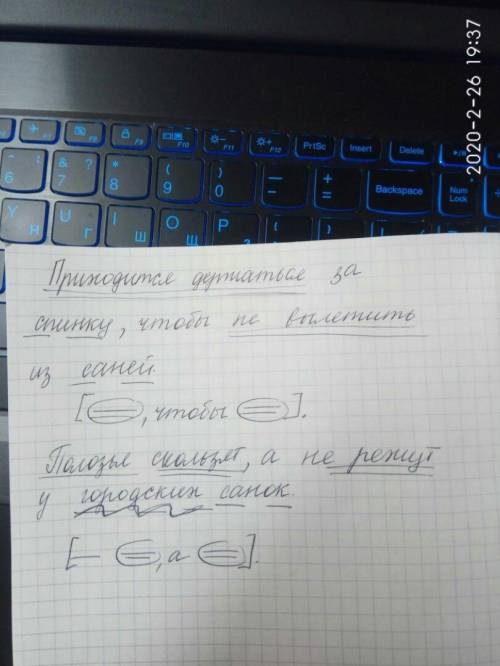 2020-2-26 19:37
F7 F8 F9 F10 F11 F12 PrtSc Insert Delete
^ : 6 & ? 7 * 8 ( 9 ) 0 — - + = Backspace Num Lock
Y Н U Г I Ш O Щ P З
Приходится держаться за
спинку, чтобы не вылетить
из саней.
[ , чтобы ].
Полозья скользят, а не режут
у городских санок.
[— , а ].